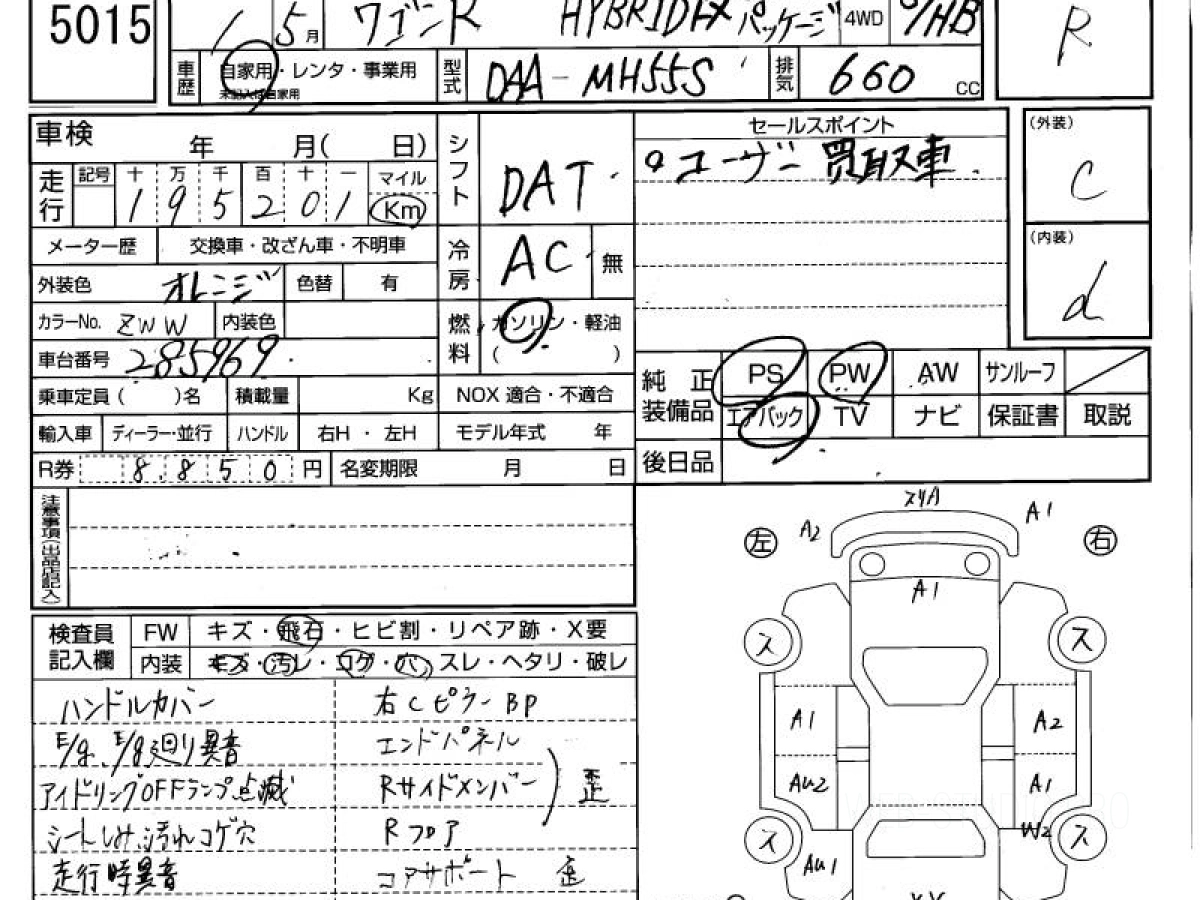 5015
1 5月 ワゴンR HYBRID FX パッケージ 4WD 5/HB R
車歴 自家用・レンタ・事業用 型式 DAA-MH55S 排気 660 CC
未記入は自家用
車検 年 月( 日) シフト DAT セールスポイント (外装) C
走行 記号 十 万 千 百 十 一 マイル
195201 Km
。ユーザー買取り車.
メーター歴 交換車・改ざん車・不明車 冷房 AC 無 (内装) d
外装色 オレンジ 色替 有
カラーNo. ZWW 内装色 燃料 ガソリン・軽油
( )
車台番号 285969
乗車定員( )名 積載量 Kg NOX 適合・不適合
純正装備品 PS PW AW サンルーフ
エアバック TV ナビ 保証書 取説
輸入車 ディーラー・並行 ハンドル 右H・左H モデル年式 年
R券 8,850 円 名変期限 月 日 後日品
注意事項(出品店記入)
検査員記入欄 FW キズ・飛石・ヒビ割・リペア跡・X要
内装 キズ・汚レ・コゲ・穴・スレ・ヘタリ・破レ
ハンドルカバー 右CピラーBP
E/g、E/g廻り異音 エンドパネル
アイドリングOFFランプ点滅 Rサイドメンバー 歪
シートしみ汚れコゲ穴 Rフロア
走行時異音 コアサポート 歪
スリA
左 A2 A1 右
A1
ス ス
A1 A2
AU2 A1
W2
ス ス
AU1
XX